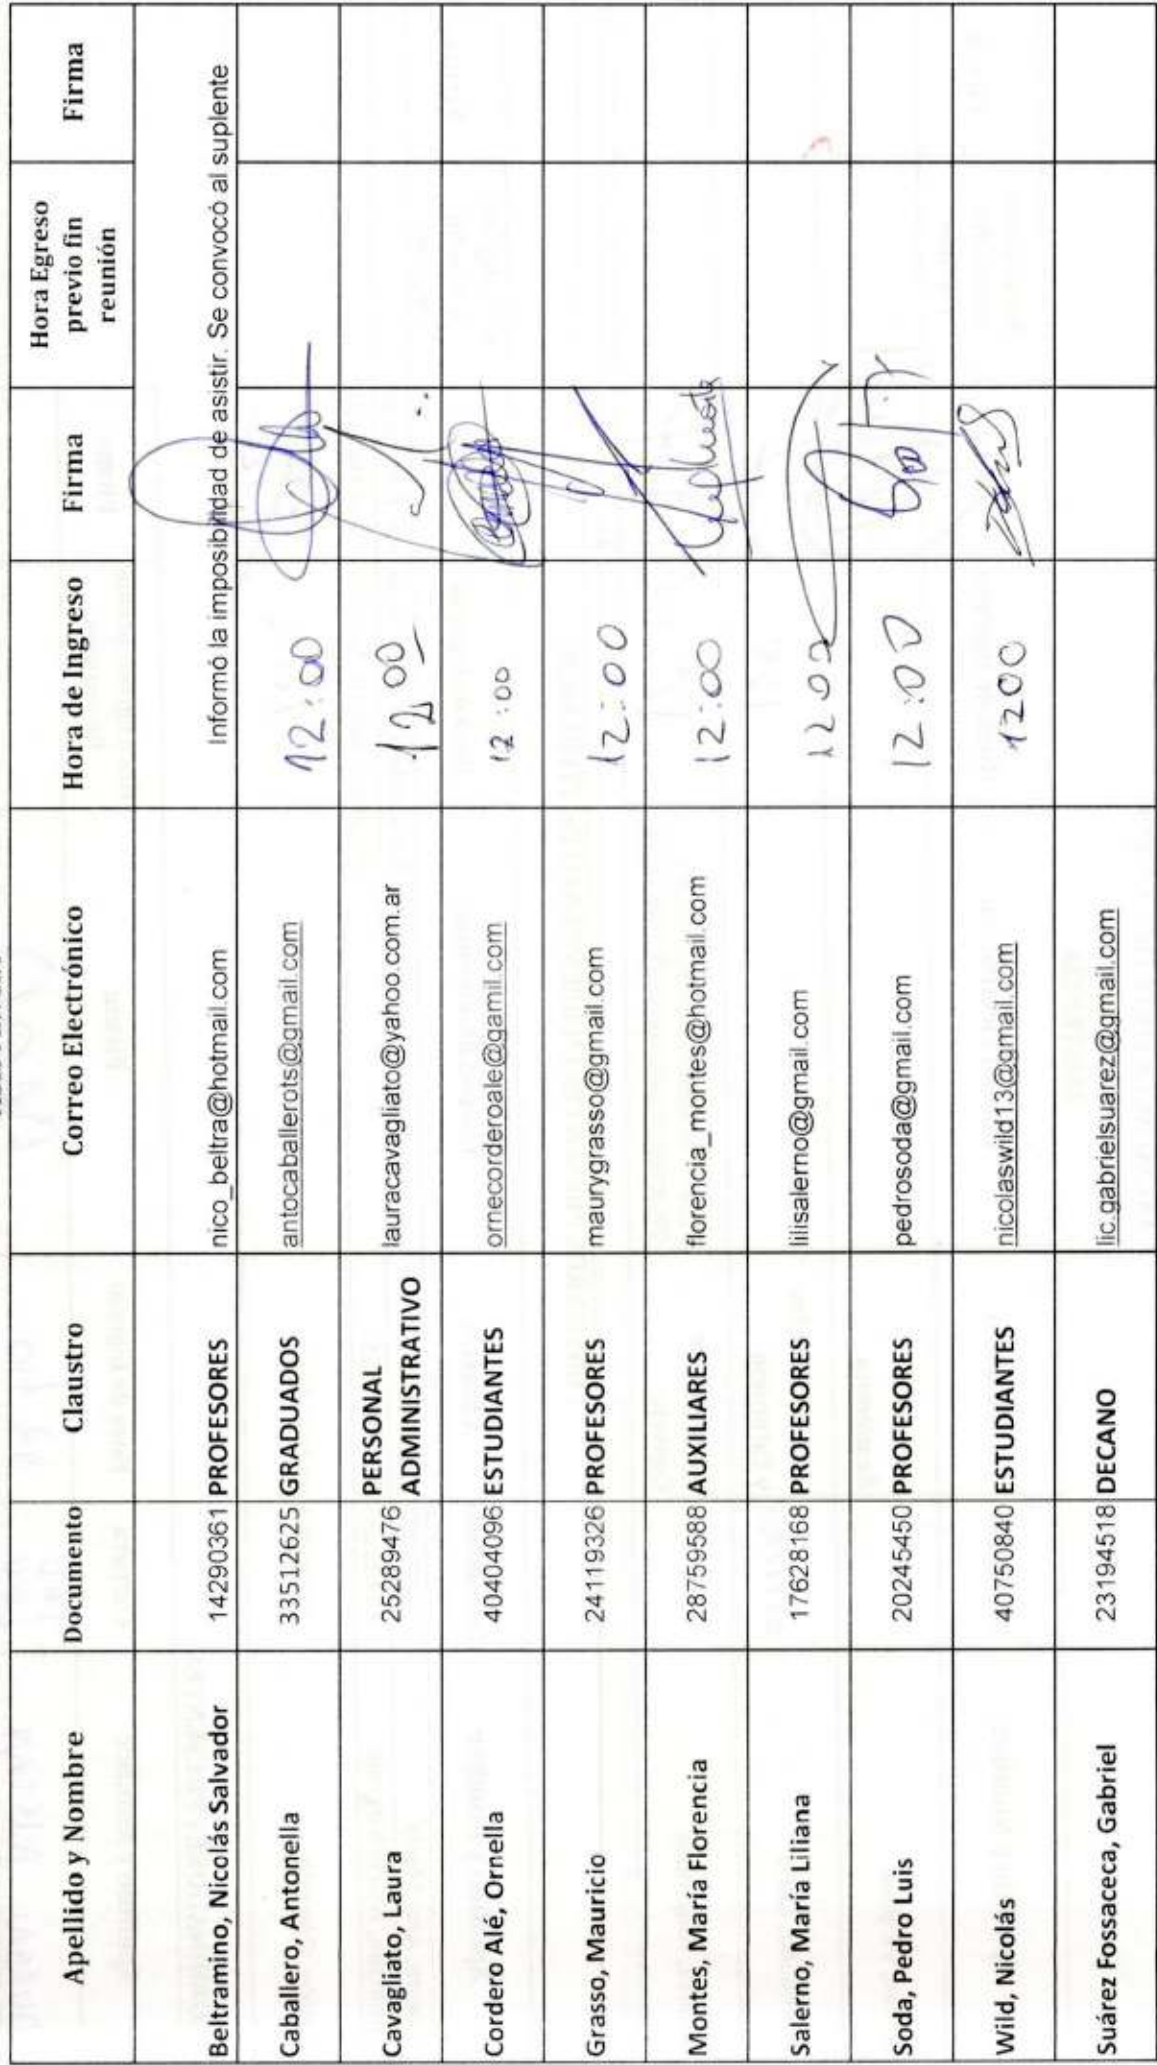 Apellido y Nombre Documento Claustro Correo Electrónico Hora de Ingreso Firma Hora Egreso previo fin reunión Firma
Beltramino, Nicolás Salvador 14290361 PROFESORES nico_beltra@hotmail.com Informó la imposibilidad de asistir. Se convocó al suplente
Caballero, Antonella 33512625 GRADUADOS antocaballerots@gmail.com 12:00
Cavagliato, Laura 25289476 PERSONAL ADMINISTRATIVO lauracavagliato@yahoo.com.ar 12 00
Cordero Alé, Ornella 40404096 ESTUDIANTES ornecorderoale@gamil.com 12:00
Grasso, Mauricio 24119326 PROFESORES maurygrasso@gmail.com 12:00
Montes, María Florencia 28759588 AUXILIARES florencia_montes@hotmail.com 12:00
Salerno, María Liliana 17628168 PROFESORES lilisalerno@gmail.com 12 02
Soda, Pedro Luis 20245450 PROFESORES pedrosoda@gmail.com 12:00
Wild, Nicolás 40750840 ESTUDIANTES nicolaswild13@gmail.com 1200
Suárez Fossaceca, Gabriel 23194518 DECANO lic.gabrielsuarez@gmail.com